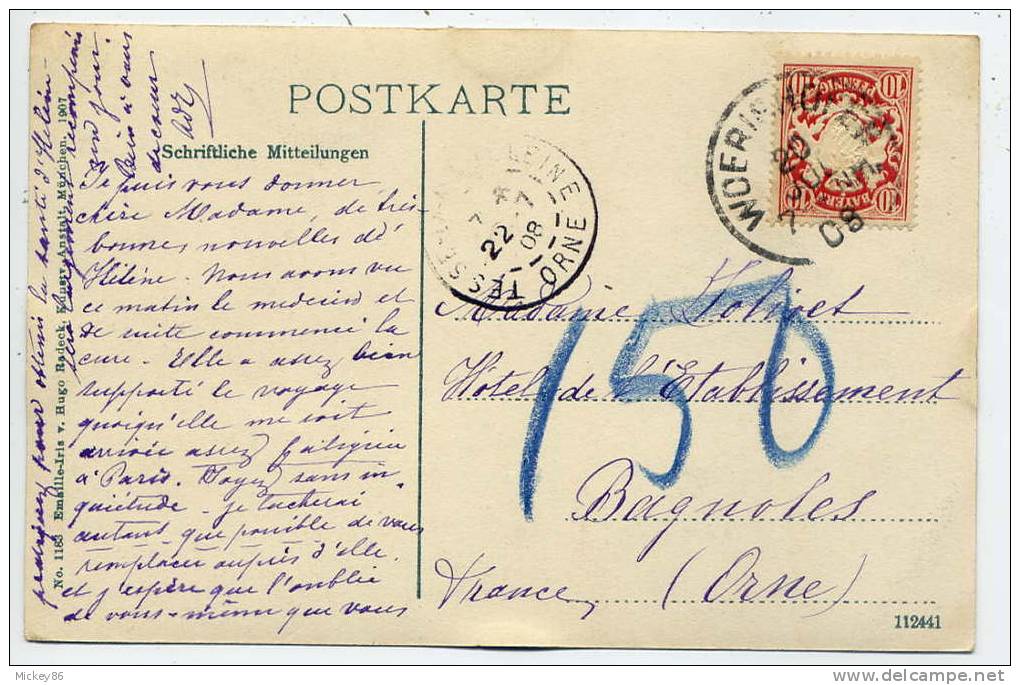 POSTKARTE
Schriftliche Mitteilungen
Je puis vous donner,
chère Madame, de très
bonnes nouvelles de
Hélène. Nous avons vu
ce matin le medecin et
de suite commencé la
cure. Elle a assez bien
supporté le voyage
quoiqu'elle me soit
arrivée assez fatiguée
à Paris. Soyez sans in-
quiétude. je tacherai
autant que possible de vous
remplacer auprès d'elle.
et j'espère que l'oublie
de vous-même que vous
pour obtenir la santé d'Hélène
sera largement recompensé
un jour.
Bien à vous
de coeur
No. 1183 Emaille-Iris v. Hugo Radeck, Kunstv. Anstalt, München, 1907
Madame Jolivet
Hôtel de l'Etablissement
Bagnoles
(Orne)
France
150
TESSÉ
LEINE
ORNE
22
08
10
10
PFENNIG
BAYERN
10
10
WOERISHOFEN
7
08
112441
Mickey86
www.delcampe.net